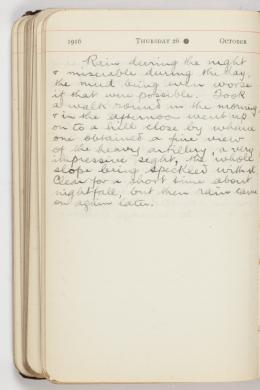 1916 THURSDAY 26 ● OCTOBER
Rain during the night
& miserable during the day,
the mud being even worse
if that were possible. Took
a walk round in the morning,
& in the afternoon went up
on to a hill close by where
one obtained a fine view
of the heavy artillery, a very
impressive sight, the whole
slope being speckled with it
Clear for a short time about
nightfall, but then rain came
on again later.